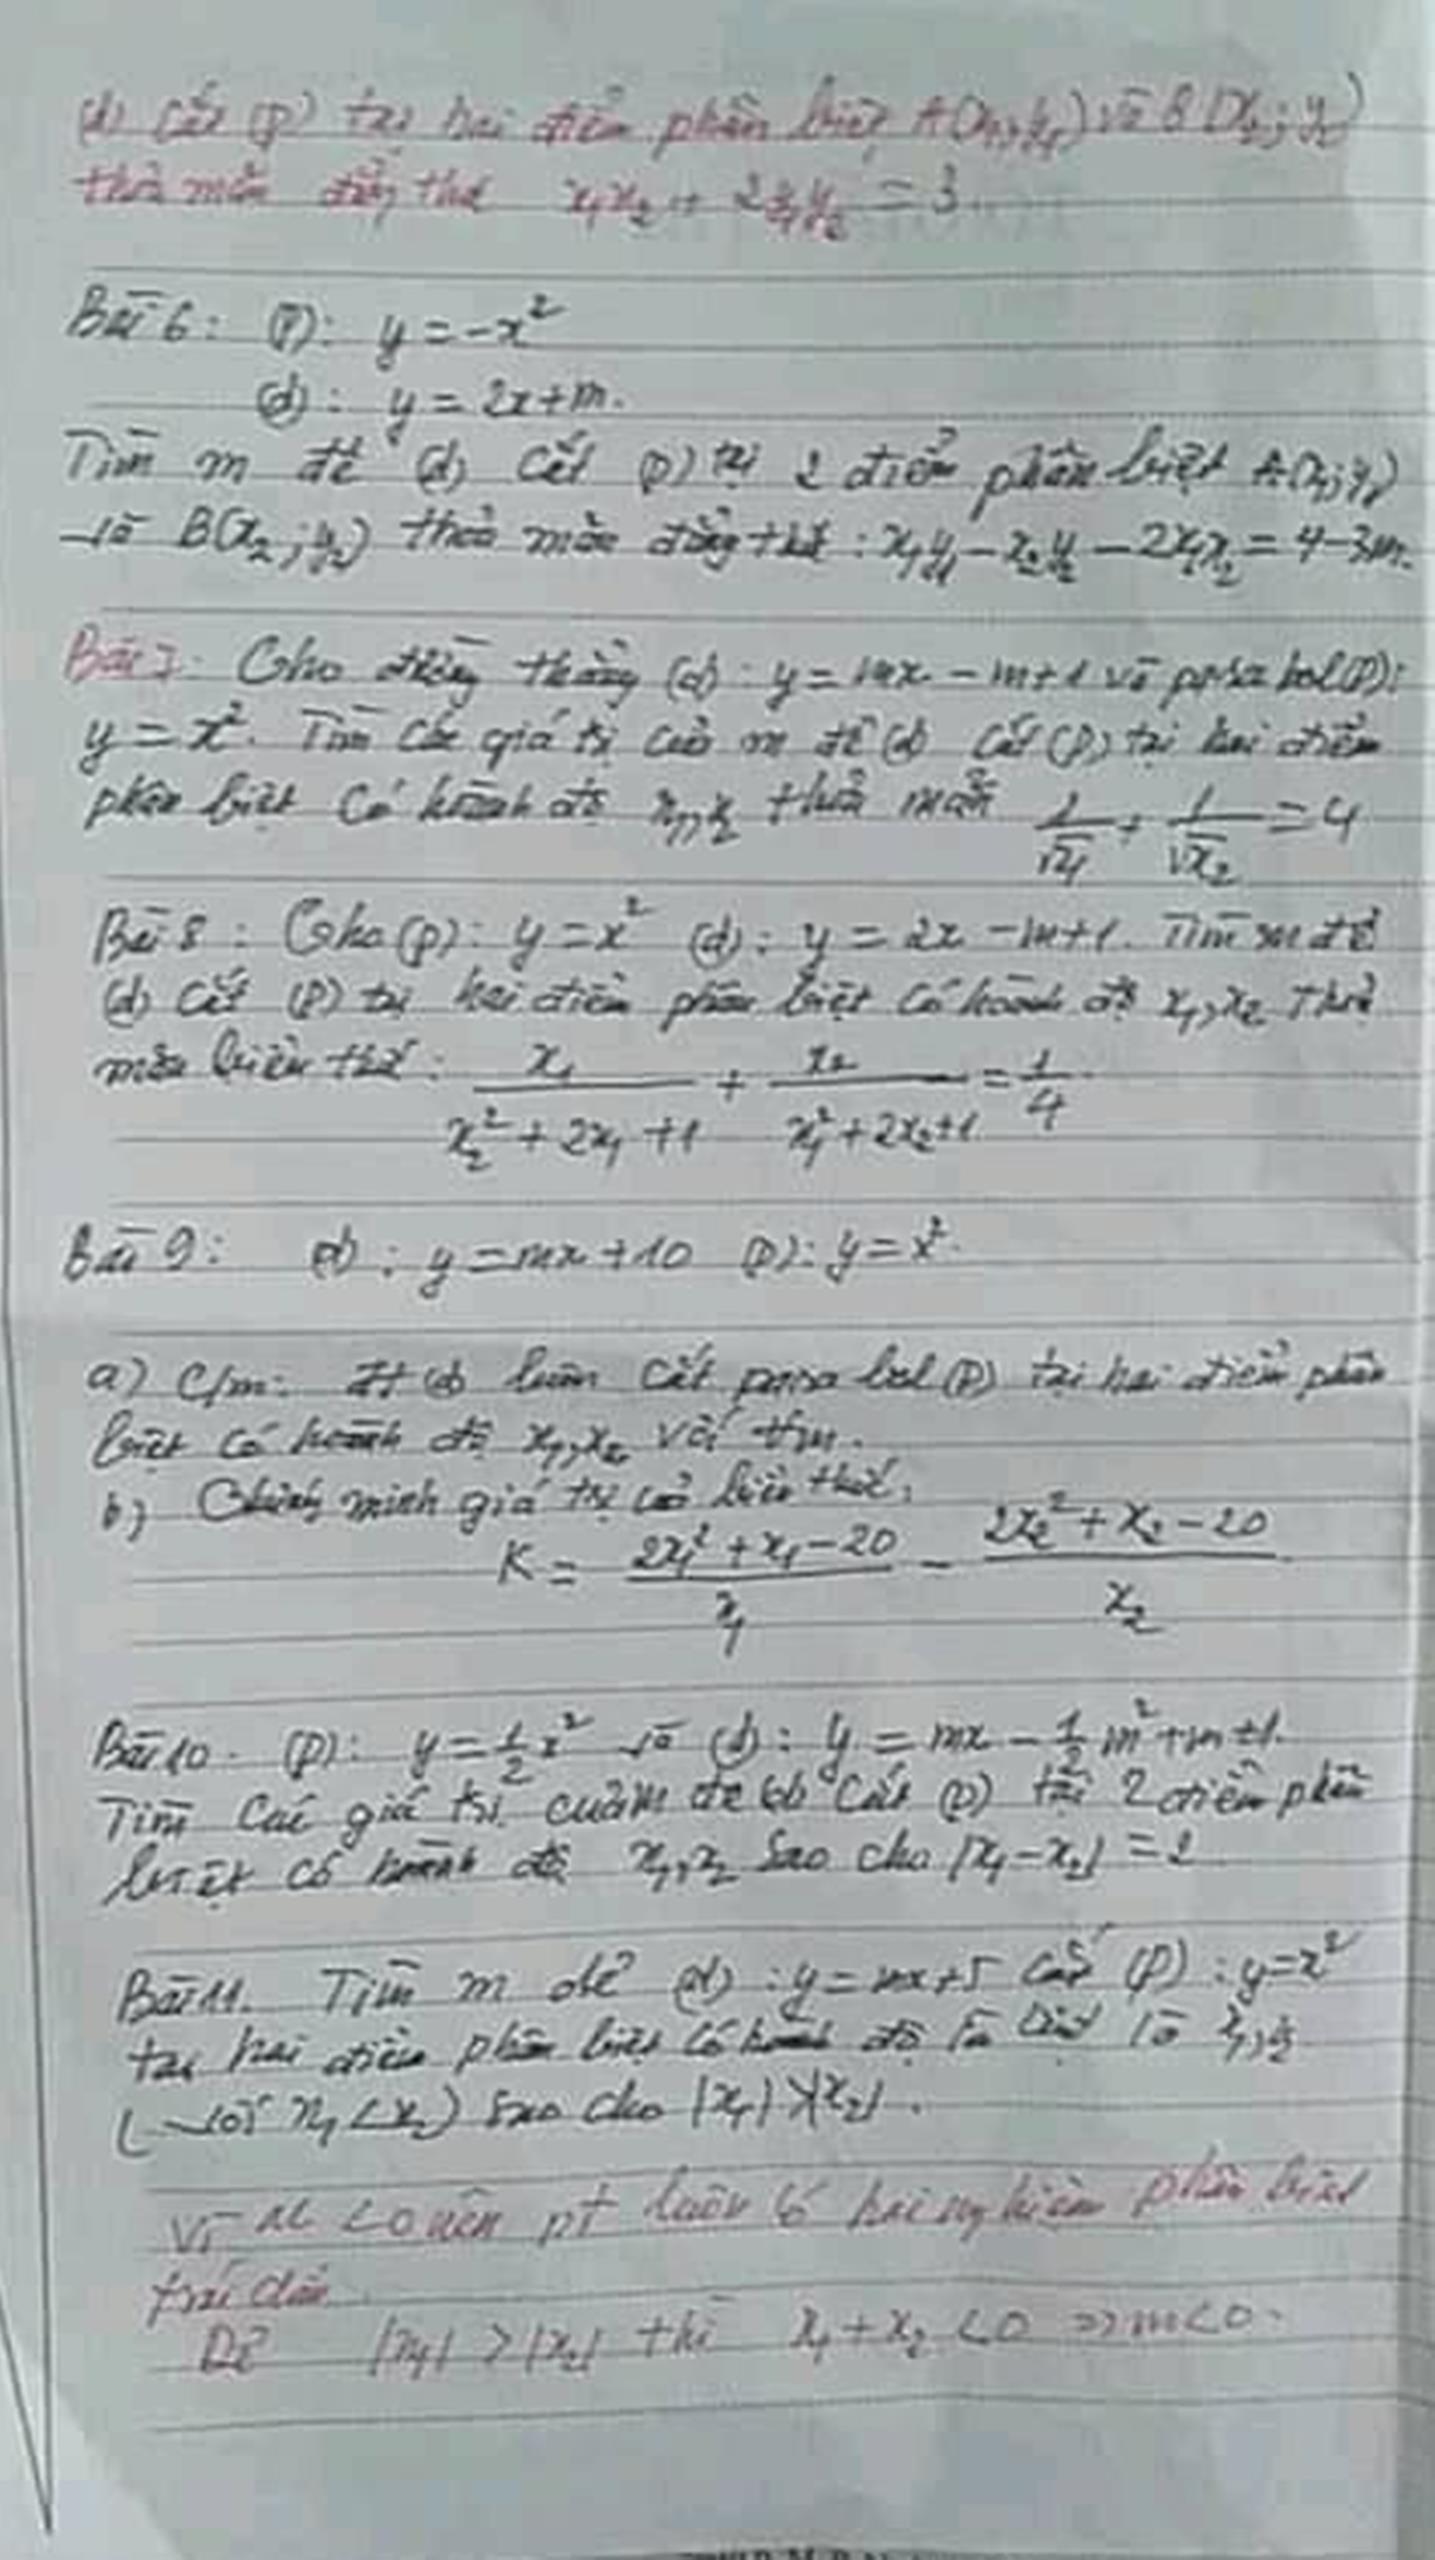 (d) cắt (P) tại hai điểm phân biệt A(x₁; y₁) và B(x₂; y₂)
thỏa mãn đẳng thức x₁x₂ + 2y₁y₂ = 3.
Bài 6: (P): y = -x²
(d): y = 2x + m.
Tìm m để (d) cắt (P) tại 2 điểm phân biệt A(x₁; y₁)
và B(x₂; y₂) thỏa mãn đẳng thức: x₁y₁ - x₂y₂ - 2x₁x₂ = 4 - 3m.
Bài 7. Cho đường thẳng (d): y = mx - m + 1 và parabol (P):
y = x². Tìm các giá trị của m để (d) cắt (P) tại hai điểm
phân biệt có hoành độ x₁, x₂ thỏa mãn 1/√x₁ + 1/√x₂ = 4
Bài 8: Cho (P): y = x² (d): y = 2x - m + 1. Tìm m để
(d) cắt (P) tại hai điểm phân biệt có hoành độ x₁, x₂ thỏa
mãn biểu thức: x₁/(x₂² + 2x₁ + 1) + x₂/(x₁² + 2x₂ + 1) = 1/4
Bài 9: (d): y = mx + 10 (P): y = x².
a) C/m: đt (d) luôn cắt parabol (P) tại hai điểm phân
biệt có hoành độ x₁, x₂ với ∀m.
b) Chứng minh giá trị của biểu thức:
K = (2x₁² + x₁ - 20)/x₁ - (2x₂² + x₂ - 20)/x₂
Bài 10. (P): y = 1/2 x² và (d): y = mx - 1/2 m² + m + 1.
Tìm các giá trị của m để (d) cắt (P) tại 2 điểm phân
biệt có hoành độ x₁, x₂ sao cho |x₁ - x₂| = 2
Bài 11. Tìm m để (d): y = mx + 5 cắt (P): y = x²
tại hai điểm phân biệt có hoành độ lần lượt là x₁, x₂
(với x₁ < x₂) sao cho |x₁| > |x₂|.
Vì ac < 0 nên pt luôn có hai nghiệm phân biệt
trái dấu
Để |x₁| > |x₂| thì x₁ + x₂ < 0 => m < 0.